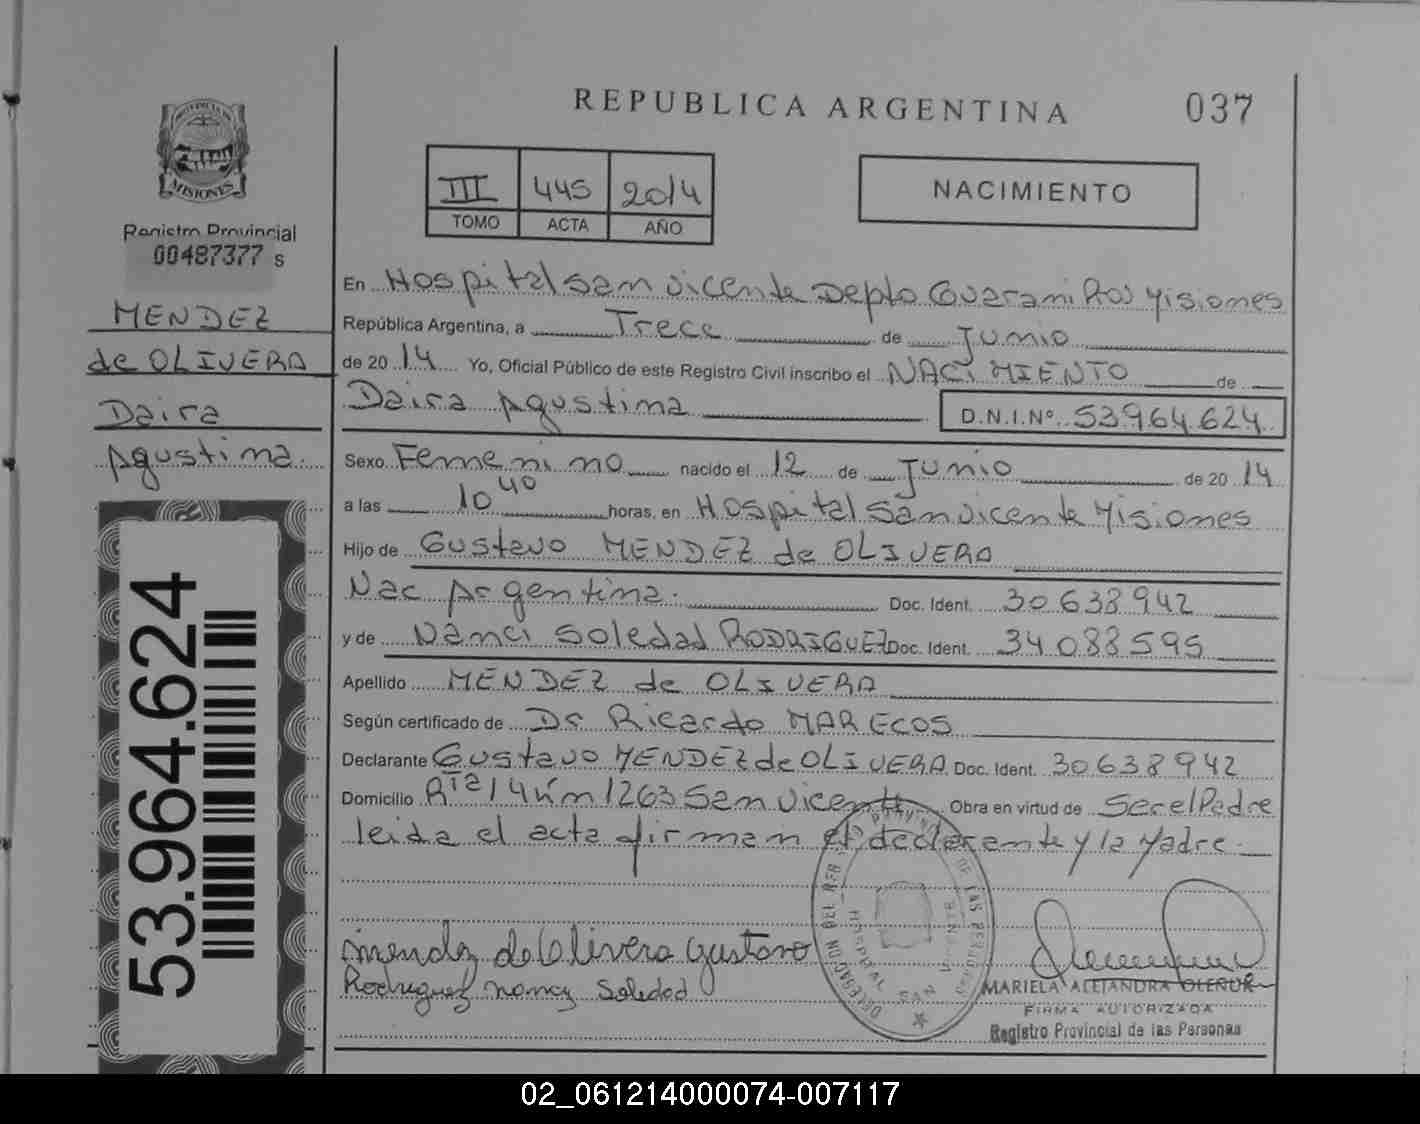 REPUBLICA ARGENTINA
037
PROVINCIA DE
MISIONES
Registro Provincial
00487377 S
MENDEZ
de OLIVERA
Daira
Agustina.
53.964.624
III 445 2014
TOMO ACTA AÑO
NACIMIENTO
En Hospital San Vicente Depto Guarani Pcia Misiones
República Argentina, a Trece de Junio
de 20 14 Yo, Oficial Público de este Registro Civil inscribo el NACIMIENTO de
Daira Agustina D.N.I.Nº 53964624
Sexo Femenino nacido el 12 de Junio de 20 14
a las 10 40 horas, en Hospital San Vicente Misiones
Hijo de Gustavo MENDEZ de OLIVERA
Nac Argentina. Doc. Ident. 30638942
y de Nanci Soledad RODRIGUEZ Doc. Ident. 34088595
Apellido MENDEZ de OLIVERA
Según certificado de Dr. Ricardo MARECOS
Declarante Gustavo MENDEZ de OLIVERA Doc. Ident. 30638942
Domicilio Rta 14 km 1263 San Vicente Obra en virtud de Ser el Padre
leida el acta firman el declarante y la Madre.
mendez de Olivera Gustavo
Rodriguez nancy Soledad
DELEGACION DEL REG. PROVINCIAL DE LAS PERSONAS
HOSPITAL SAN
MARIELA ALEJANDRA OLENUK
FIRMA AUTORIZADA
Registro Provincial de las Personas
02_061214000074-007117